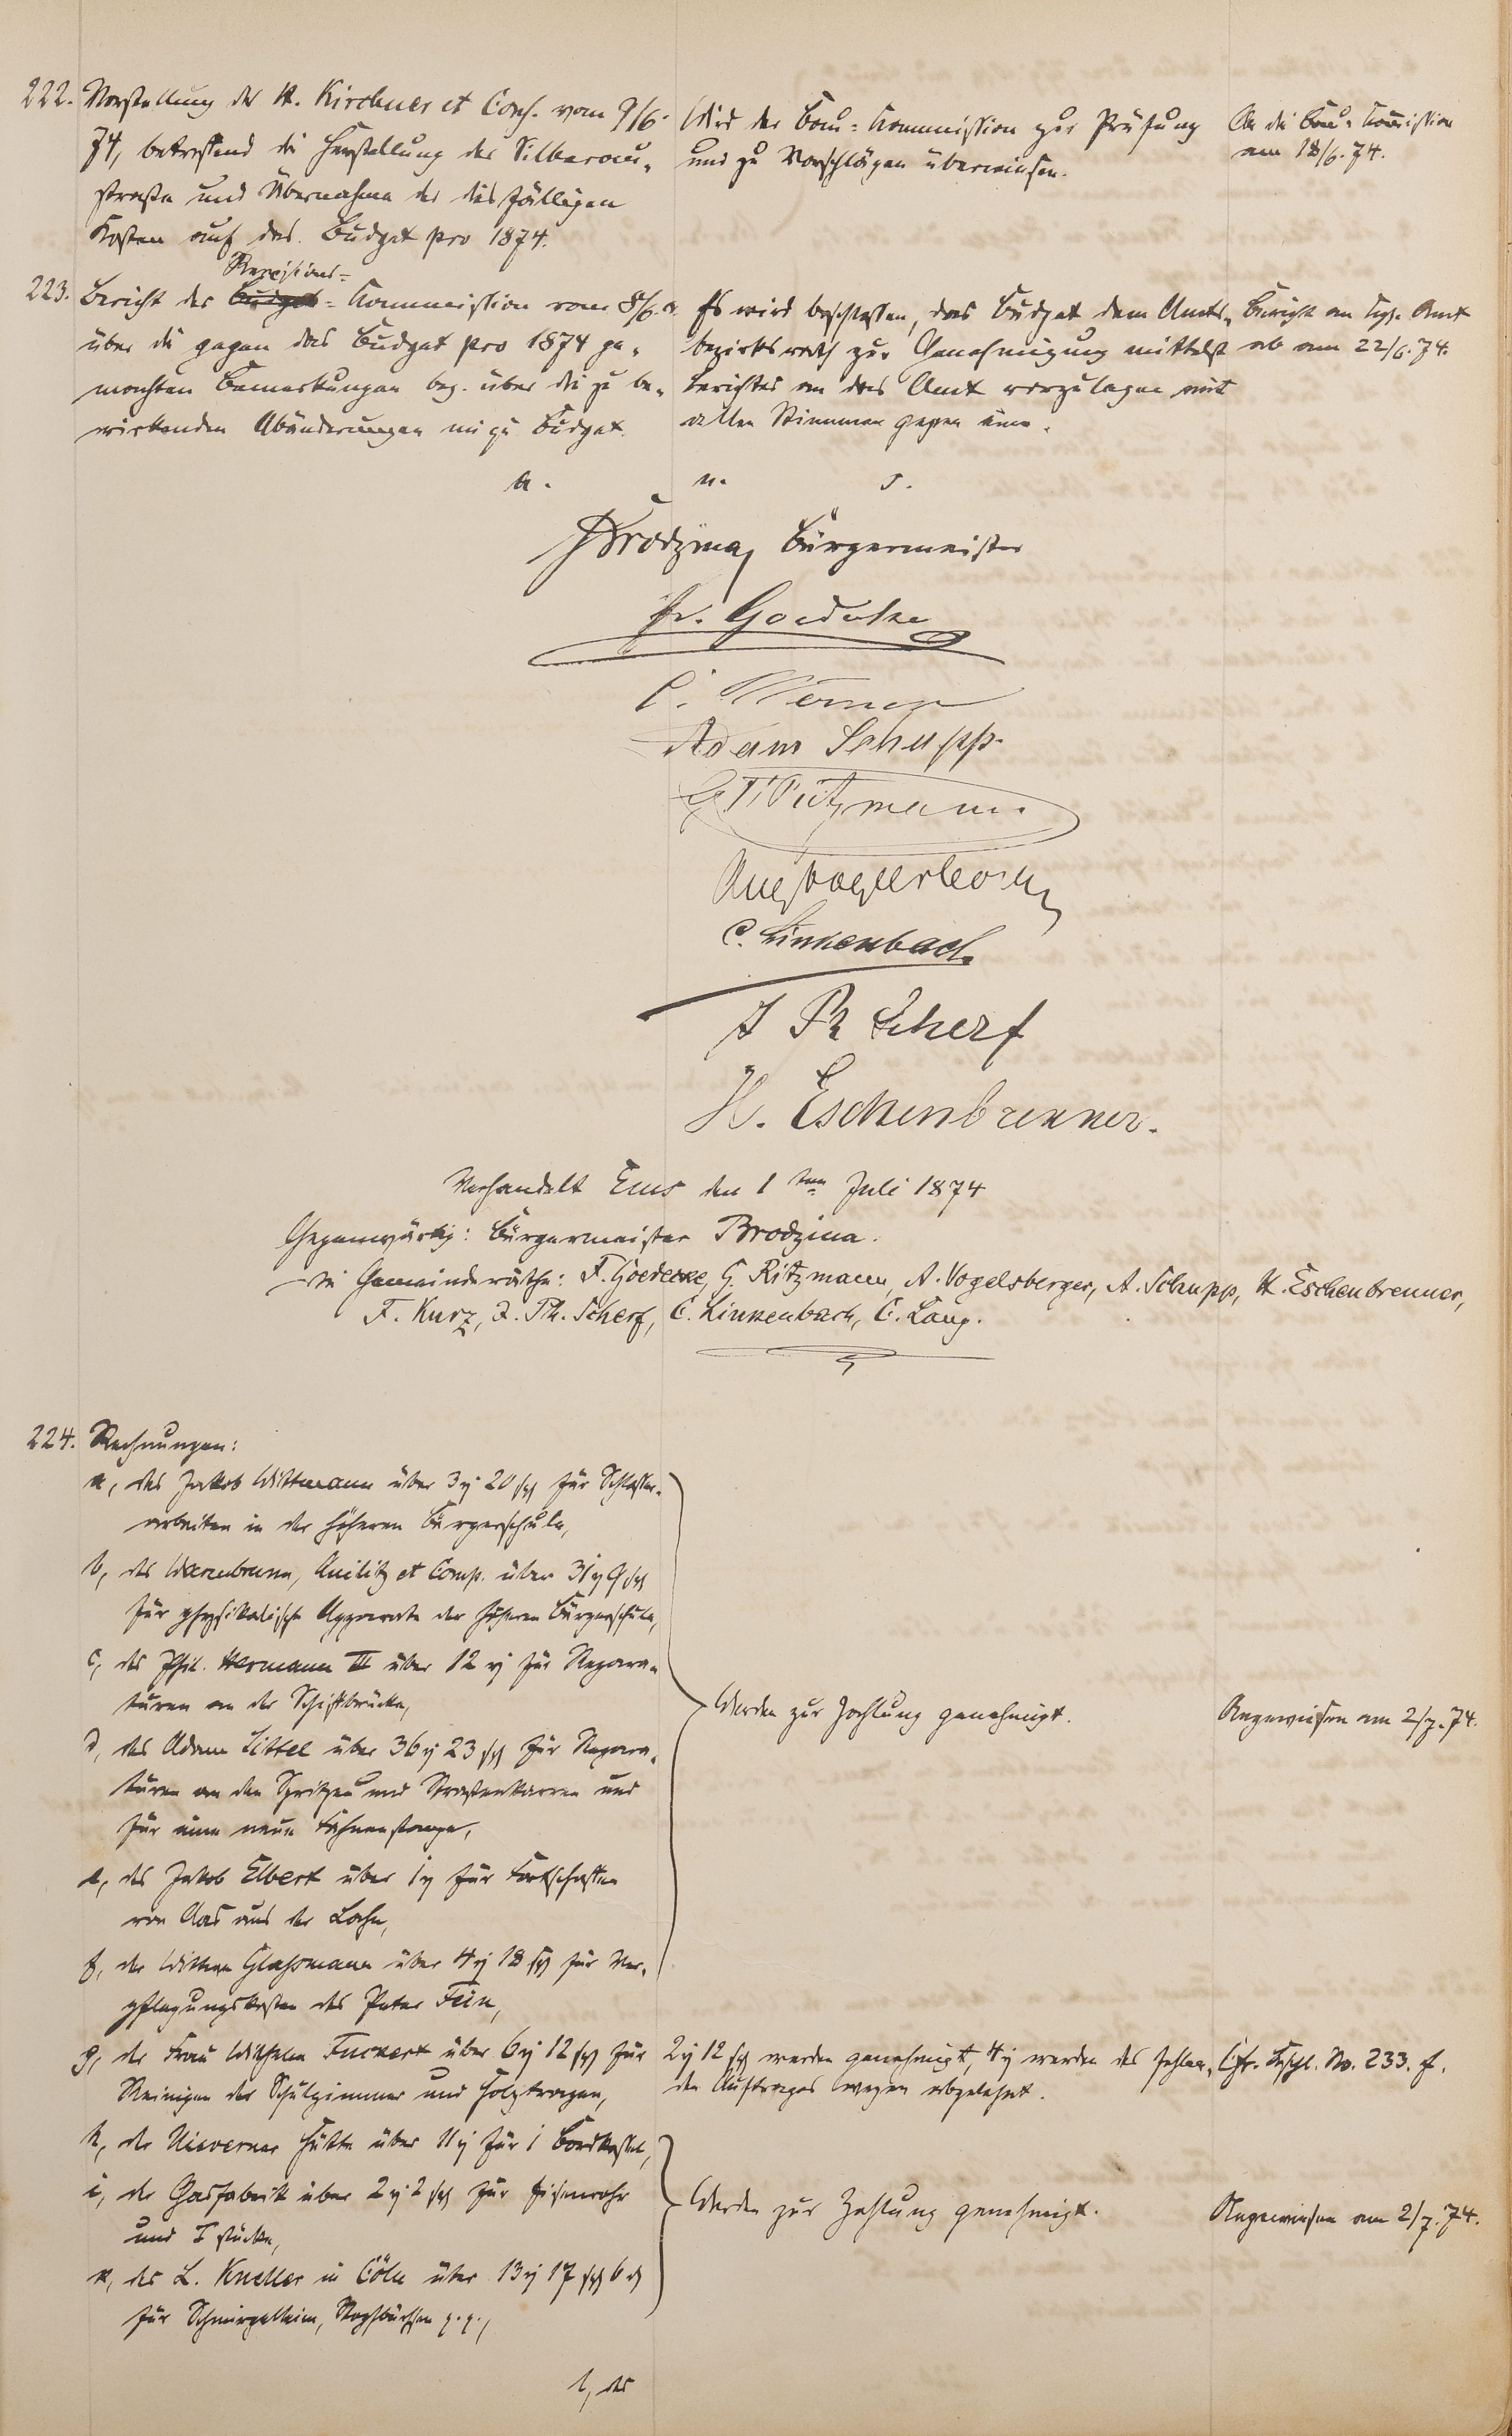 222. Vorstellung des H. Kirchner et Cons. vom 9/6.
74, betreffend die Herstellung der Silberau-
straße und Übernahme der desfälligen
Kosten auf das Budget pro 1874.
Wird der Bau-Kommission zur Prüfung
und zu Vorschlägen überwiesen.
An die Bau-Kommission
am 18/6. 74.
Revisions-
223. Bericht der Budget-Kommission vom 8/6. a.
über die gegen das Budget pro 1874 ge-
machten Bemerkungen bez. über die zu be-
wirkenden Abänderungen im gen. Budget.
Es wird beschlossen, das Budget dem Amts-
bezirksrath zur Genehmigung mittelst
Berichtes an das Amt vorzulegen mit
allen Stimmen gegen eine.
Bericht an Kgl. Amt
ab am 22/6. 74.
a. u. s.
Brodzina, Bürgermeister
Fr. Goedecke
C. Werner
Adam Schupp.
G. Ritzmann.
Aug Vogelsberger
C. Linkenbach.
J Ph Scherf
H. Eschenbrenner.
Verhandelt Ems den 1ten Juli 1874
Gegenwärtig: Bürgermeister Brodzina.
die Gemeinderäthe: F. Goedecke, G. Ritzmann, A. Vogelsberger, A. Schupp, H. Eschenbrenner,
F. Kurz, J. Ph. Scherf, C. Linkenbach, C. Lang.
224. Rechnungen:
a, des Jakob Wittmann über 3 rh 20 sgr für Schlosser-
arbeiten in der höheren Bürgerschule,
b, des Warmbrunn, Quilitz et Comp. über 31 rh 9 sgr
für physikalische Apparate der höheren Bürgerschule,
c, des Phil. Hermann II über 12 rh für Repara-
turen an der Schiffbrücke,
d, des Adam Littel über 36 rh 23 sgr für Repara-
turen an den Spritzen und Straßenkarren und
für eine neue Fahnenstange,
e, des Jakob Elbert über 1 rh für Fortschaffen
von Aas aus der Lahn,
f, der Wittwe Glaßmann über 4 rh 18 sgr für Ver-
pflegungskosten des Peter Fein,
Werden zur Zahlung genehmigt.
Angewiesen am 2/7. 74.
g, der Frau Wilhelm Fuckert über 6 rh 12 sgr für
Reinigen der Schulzimmer und Holztragen,
2 rh 12 sgr werden genehmigt, 4 rh werden des fehlen-
den Auftrages wegen abgelehnt.
Cfr. Beschl. No. 233. f.
h, der Nieverner Hütte über 11 rh für 1
i, der Gasfabrik über 2 rh 2 sgr für Eisenrohr
und T stücke,
k, des L. Kneller in Cöln über 13 rh 17 sgr 6 d
für Schmirgelleim, p. p.,
Werden zur Zahlung genehmigt.
Angewiesen am 2/7. 74.
l, des